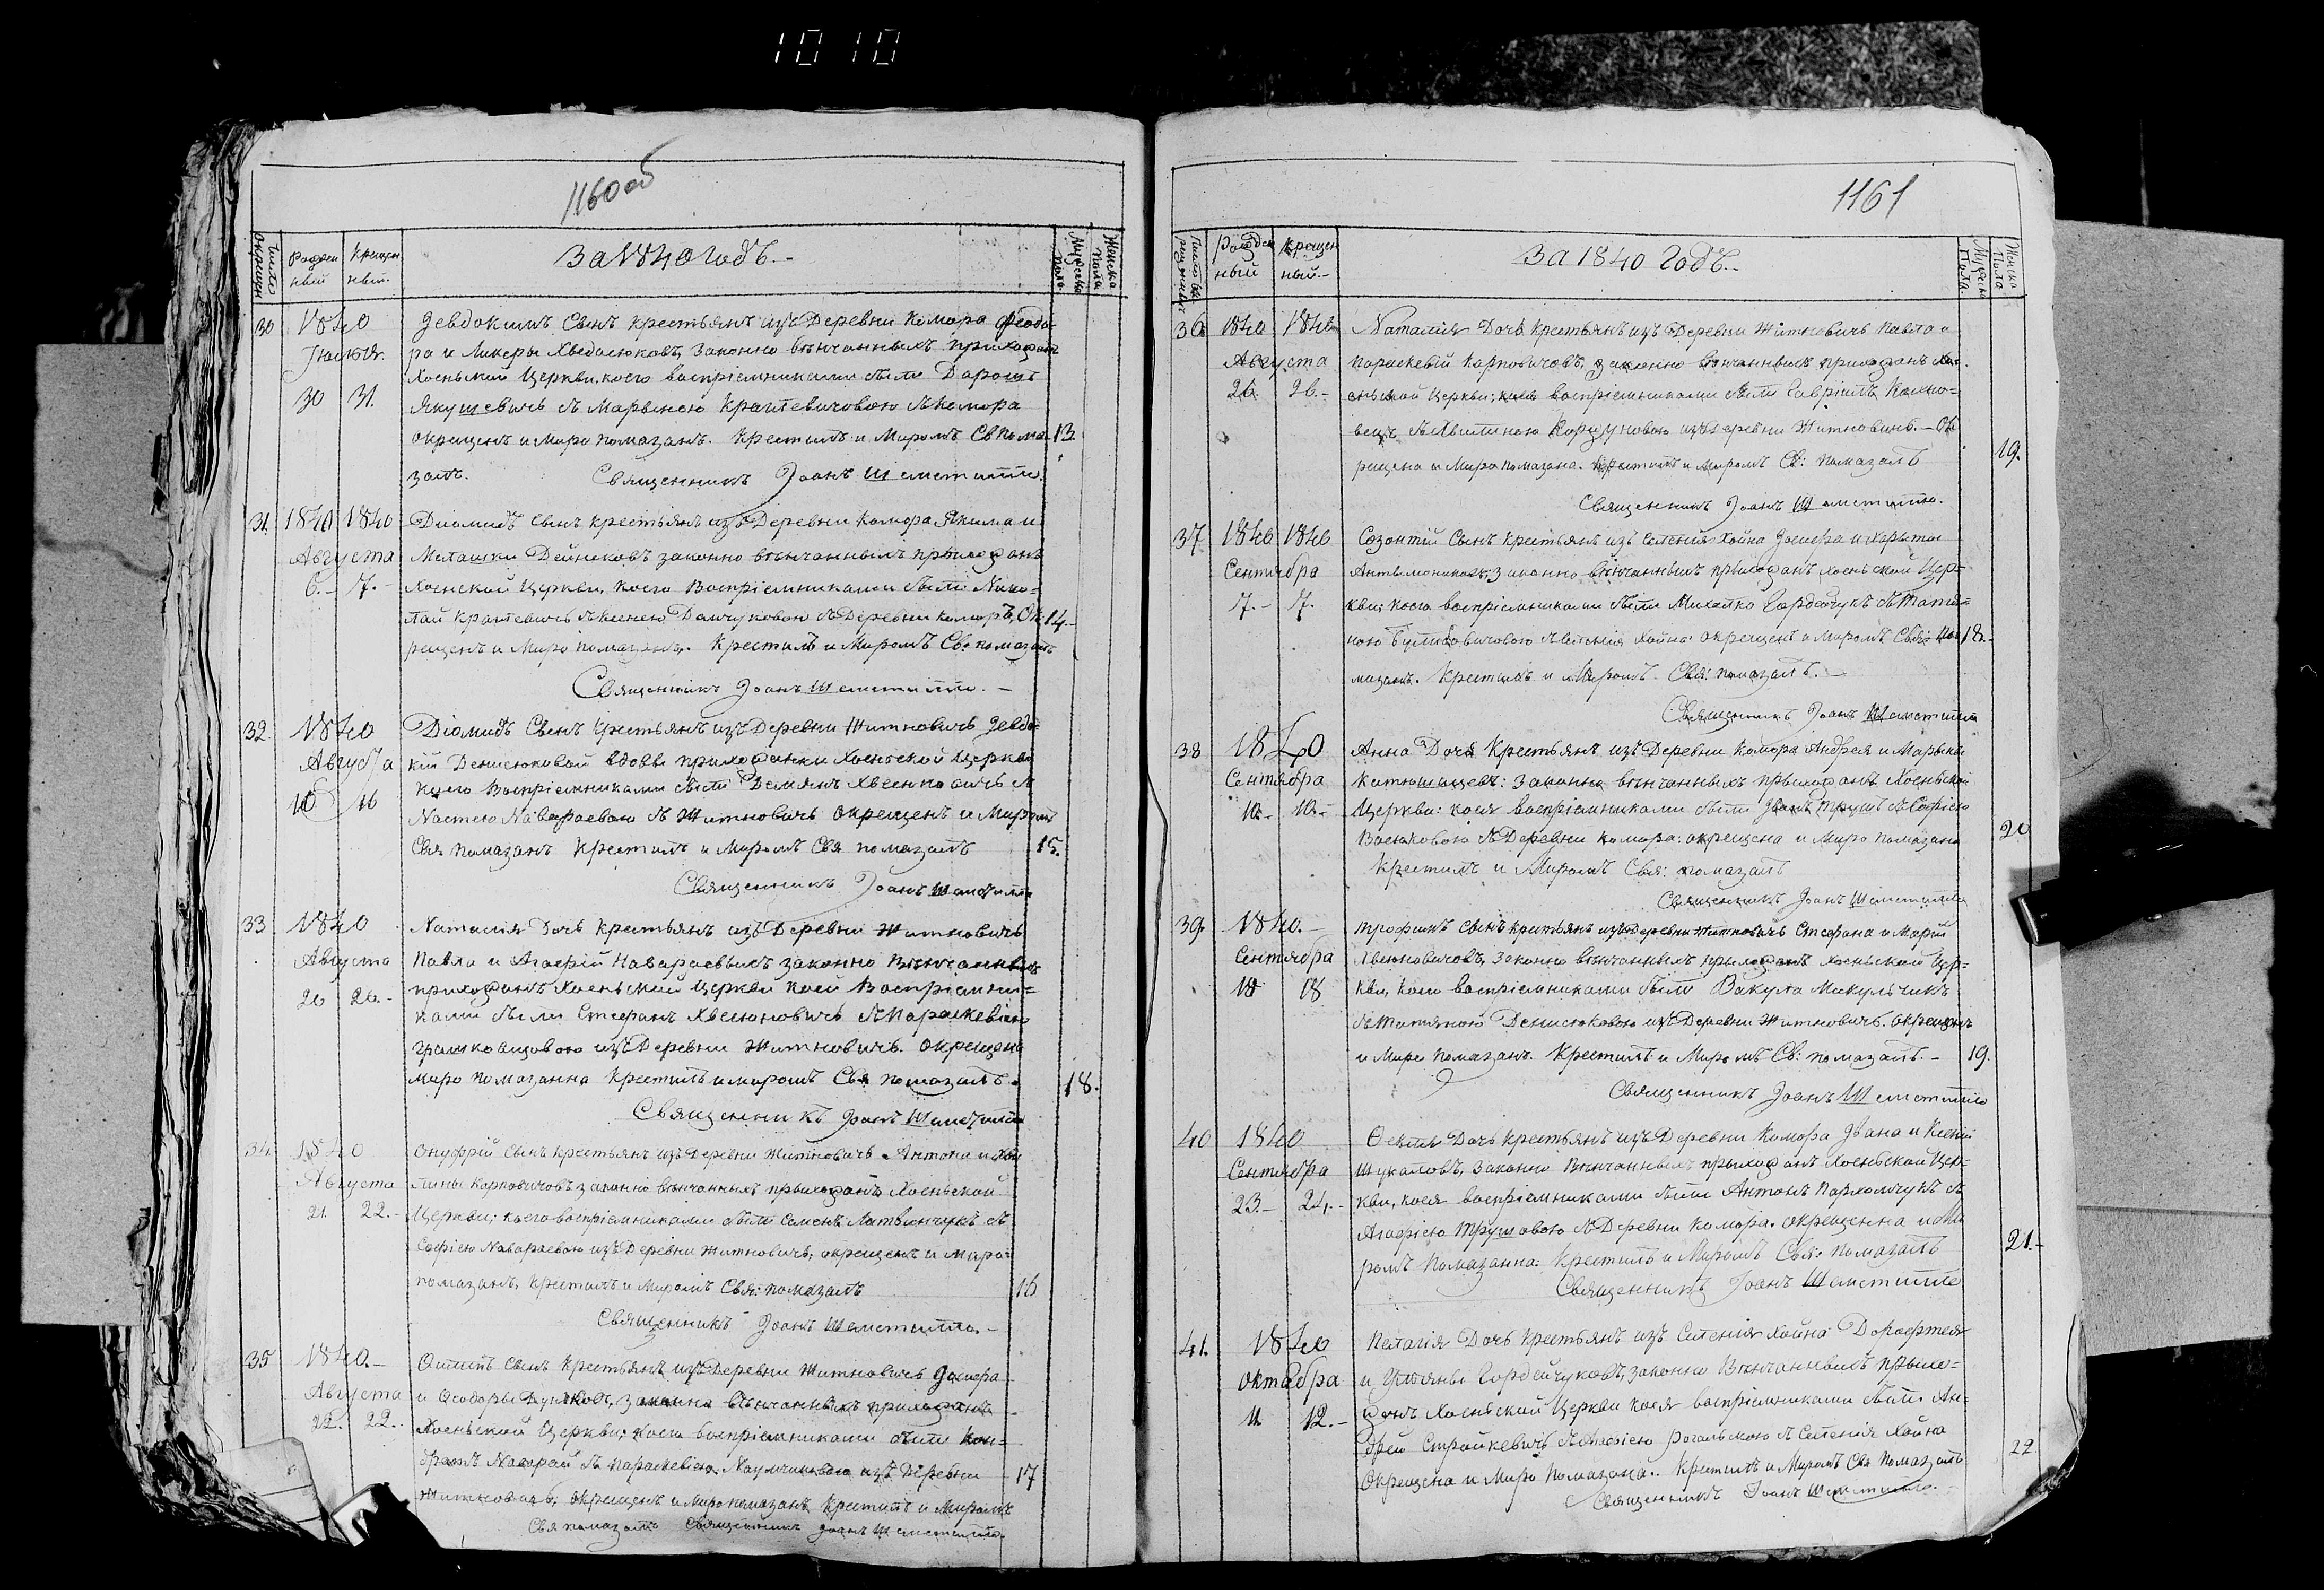 1010
1160 об
Число окрещен
Рожден
ный
Крещен
ный.
За 1840 годъ.-
Мужеска
пола.
Женска
пола
30 1840 Іевдокимъ Сынъ крестьянъ изъ Деревни Комора Феодо-
Іюля. ра и Ликеры Хведасюковъ, Законно вѣнчанныхъ прихожан
Хоеньской Церкви, коего воспріемниками были
30 31. Якушевичъ съ Марьяною Кратевичовою съ Комора
окрещенъ и Миро помазанъ. Крестилъ и Миромъ Св пома- 13.
залъ. Священникъ Іоанъ Шеметилло.
31. 1840 1840 Диомидъ Сынъ крестьянъ изъ Деревни Комора Якима и
Августа Мелашки Дейнековъ законно вѣнчанныхъ прихожанъ
6.- 7.- Хоенской Церкви, коего Воспріемниками были Нико-
лай Кратевичъ съ Ксенею съ Деревни Коморъ, Ок- 14.-
рещенъ и Миро помазанъ. Крестилъ и Миромъ Св: помазалъ
Священникъ Іоанъ Шеметилло.-
32. 1840 Діомидъ Сынъ Крестьянъ изъ Деревни Житновичь Іевдо-
Августа кіи Денисюковой вдовы прихожанки Хоенской Церкви
10 10 коего Воспріемниками были Демянъ съ
Настею Навараевою съ Житновичь окрещенъ и Миромъ
Свя помазанъ Крестилъ и Миромъ Свя помазалъ 15.
Священникъ Іоанъ Шеметилло
33 1840 Наталія Дочь Крестьянъ изъ Деревни Житновичь
Августа Павла и Агафіи Навараевыхъ законно Вѣнчанныхъ
26 26.- прихожанъ Хоеньской Церкви коей Воспріемни-
ками были Стефанъ Хвесюновичъ съ Параскевіею
изъ Деревни Житновичь. окрещена
миро помазанна Крестилъ и миромъ Свя помазалъ. 18.
Священникъ Іоанъ Шеметилло
34 1840 Онуфрій Сынъ крестьянъ изъ Деревни Житновичь Антона и
Августа лины Карповичовъ законно вѣнчанныхъ прихожанъ Хоеньской
21. 22.- Церкви; коего воспріемниками были Семенъ Литвинчукъ съ
Софіею Навараевою изъ Деревни Житновичь, окрещенъ и Миро-
помазанъ, Крестилъ и Миромъ Свя: помазалъ 16
Священникъ Іоанъ Шеметилло.-
35 1840.- Сынъ Крестьянъ изъ Деревни Житновичь
Августа и Феодоры законно вѣнчанныхъ прихожанъ
22. 22.. Хоеньской Церкви; коего воспріемниками были Кон-
дратъ Наварай съ Параскевіею изъ Деревни 17
Житновичь, окрещенъ и Миро помазанъ Крестилъ и Миромъ
Свя помазалъ Священникъ Іоанъ Шеметилло.
1161
Число ок
рещенныхъ
Рожден
ный
Крещен
ный.-
За 1840 Годъ.-
Мужеска
Пола.
Женска
Пола
36 1840 1840 Наталия Дочь Крестьянъ изъ Деревни Житновичь Павла и
Августа Параскевіи Карповичовъ, законно вѣнчанныхъ прихожанъ Хое-
26. 26.- ньской Церкви; коея воспріемниками были Гавріилъ
изъ деревни Житновичь.- Ок
рещена и Миро помазана. Крестилъ и Миромъ Св: помазалъ 19.
Священникъ Іоанъ Шеметилло.
37 1840 1840 Созонтій Сынъ Крестьянъ изъ Селенія Хойна
Сентября законно вѣнчанныхъ прихожанъ Хоеньской Цер-
7.- 7. кви; коего воспріемниками были Михалко Гордейчукъ съ Татья-
ною съ Селенія Хойна: окрещенъ и Миромъ Свя: по- 18.-
мазанъ. Крестилъ и Миромъ Свя: помазалъ.-
Священникъ Іоанъ Шеметилло
38 1840 Анна Дочь Крестьянъ изъ Деревни Комора Андрея и Марьяны
Сентября законно вѣнчанныхъ прихожанъ Хоеньской
10.- 10.- Церкви: коея воспріемниками были Іванъ Трушъ съ Софіею
съ Деревни Комора: окрещена и Миро помазана 20
Крестилъ и Миромъ Свя: помазалъ
Священникъ Іоанъ Шеметилло
39. 1840.- Трофимъ Сынъ крестьянъ изъ деревни Житновичь Стефана и Маріи
Сентября Хвесюновичовъ, законно вѣнчанныхъ прихожанъ Хоеньской Цер-
18 18 кви, коего воспріемниками были Вакула Микульчикъ
съ Татяною Денисюковою изъ Деревни Житновичь. Окрещенъ
и Миро помазанъ. Крестилъ и Миромъ Св: помазалъ.- 19.
Священникъ Іоанъ Шеметилло
40 1840 Дочь крестьянъ изъ Деревни Комора Іоана и Ксеніи
Сентября Шукаловъ, законно Вѣнчанныхъ прихожанъ Хоеньской Цер-
23.- 24.- кви, коея воспріемниками были Антонъ Пархомчукъ съ
Агафіею Трушовою съ Деревни Комора. окрещенна и Ми
ромъ помазанна: Крестилъ и Миромъ Свя: помазалъ 21.-
Священникъ Іоанъ Шеметилло
41. 1840 Пелагія Дочь Крестьянъ изъ Селенія Хойна Дорофтея
октября и Ульяны Гордейчуковъ, законно Вѣнчанныхъ прихо-
11. 12.- жанъ Хоеньской Церкви коея воспріемниками были Ан-
дрей Стройкевичъ съ съ Селенія Хойна 22
Окрещена и Миро помазана.. Крестилъ и Миромъ Свя помазалъ
Священникъ Іоанъ Шеметилло.